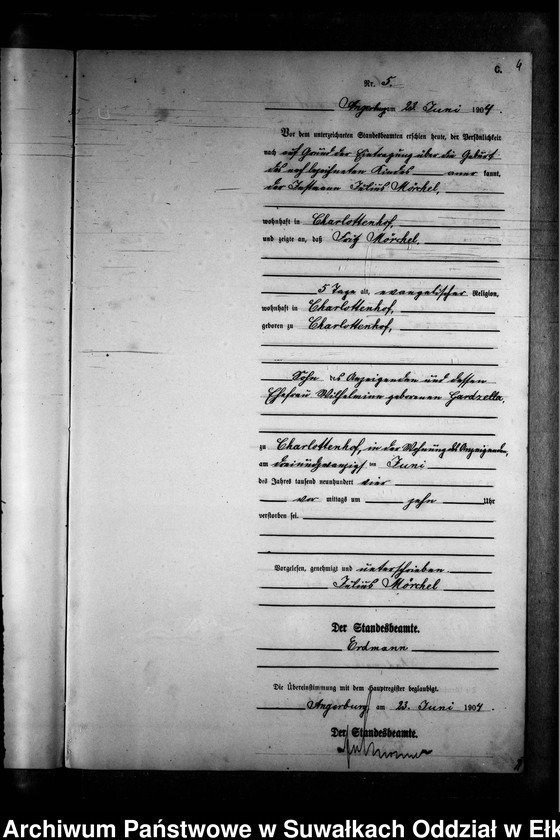 C. 4
Nr. 5.
Angerburg am 23. Juni 1904.
Vor dem unterzeichneten Standesbeamten erschien heute, der Persönlichkeit
nach auf Grund der Eintragung über die Geburt
des nachbezeichneten Kindes anerkannt,
der Instmann Julius Mörchel,
wohnhaft in Charlottenhof,
und zeigte an, daß Fritz Mörchel,
5 Tage alt, evangelischer Religion,
wohnhaft in Charlottenhof,
geboren zu Charlottenhof,
Sohn des Anzeigenden und dessen
Ehefrau Wilhelmine geborenen Gardzella,
zu Charlottenhof, in der Wohnung des Anzeigenden,
am dreiundzwanzigsten Juni
des Jahres tausend neunhundert vier
vor mittags um zehn Uhr
verstorben sei.
Vorgelesen, genehmigt und unterschrieben
Julius Mörchel
Der Standesbeamte.
Erdmann
Die Übereinstimmung mit dem Hauptregister beglaubigt.
Angerburg, am 23. Juni 1904.
Der Standesbeamte.
Archiwum Państwowe w Suwałkach Oddział w Ełk